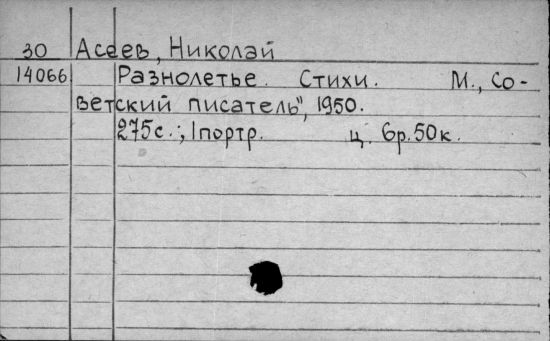 30 Асеев, Николай
14066 Разнолетье. Стихи. М., Со-
ветский писатель", 1950.
275с.; 1портр. ц. 6р.50к.